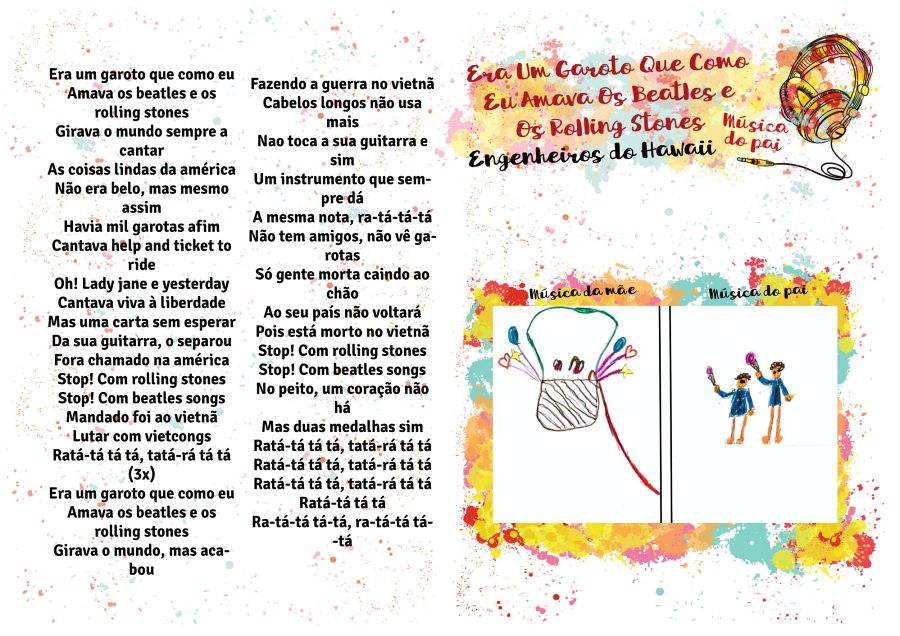 Era um garoto que como eu
Amava os beatles e os
rolling stones
Girava o mundo sempre a
cantar
As coisas lindas da américa
Não era belo, mas mesmo
assim
Havia mil garotas afim
Cantava help and ticket to
ride
Oh! Lady jane e yesterday
Cantava viva à liberdade
Mas uma carta sem esperar
Da sua guitarra, o separou
Fora chamado na américa
Stop! Com rolling stones
Stop! Com beatles songs
Mandado foi ao vietnã
Lutar com vietcongs
Ratá-tá tá tá, tatá-rá tá tá
(3x)
Era um garoto que como eu
Amava os beatles e os
rolling stones
Girava o mundo, mas aca-
bou
Fazendo a guerra no vietnã
Cabelos longos não usa
mais
Nao toca a sua guitarra e
sim
Um instrumento que sem-
pre dá
A mesma nota, ra-tá-tá-tá
Não tem amigos, não vê ga-
rotas
Só gente morta caindo ao
chão
Ao seu país não voltará
Pois está morto no vietnã
Stop! Com rolling stones
Stop! Com beatles songs
No peito, um coração não
há
Mas duas medalhas sim
Ratá-tá tá tá, tatá-rá tá tá
Ratá-tá tá tá, tatá-rá tá tá
Ratá-tá tá tá, tatá-rá tá tá
Ratá-tá tá tá
Ra-tá-tá tá-tá, ra-tá-tá tá-
-tá
Era Um Garoto Que Como
Eu Amava Os Beatles e
Os Rolling Stones
Engenheiros do Hawaii
Música
do pai
Música da mãe
Música do pai